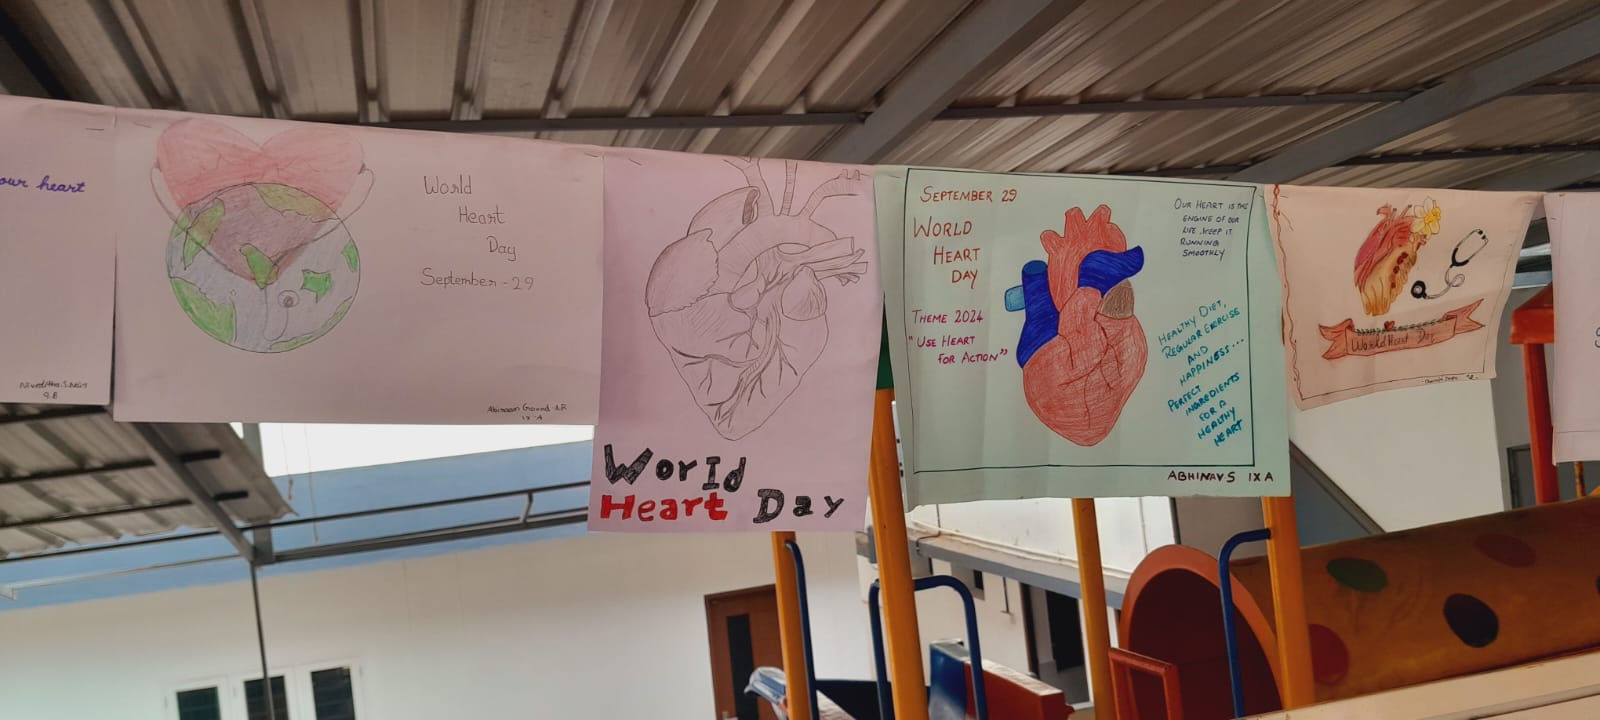 our heart
Niveditha.S.Nair
9.B
World
Heart
Day
September - 29
IX-A
World
Heart Day
SEPTEMBER 29
WORLD
HEART
DAY
THEME 2024
"USE HEART
FOR ACTION"
OUR HEART IS THE
ENGINE OF OUR
LIFE, KEEP IT
RUNNING
SMOOTHLY
HEALTHY DIET,
REGULAR EXERCISE
AND
HAPPINESS...
PERFECT
INGREDIENTS
FOR A
HEALTHY
HEART
ABHINAV S IX A
World Heart Day